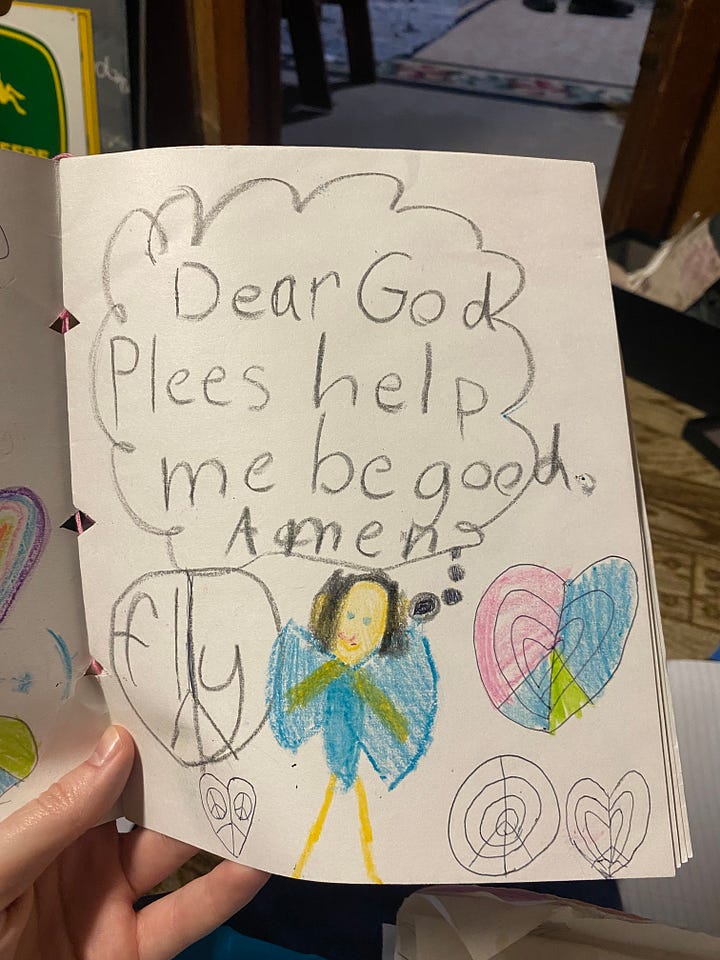 Dear God
Plees help
me be good.
Amen
fly